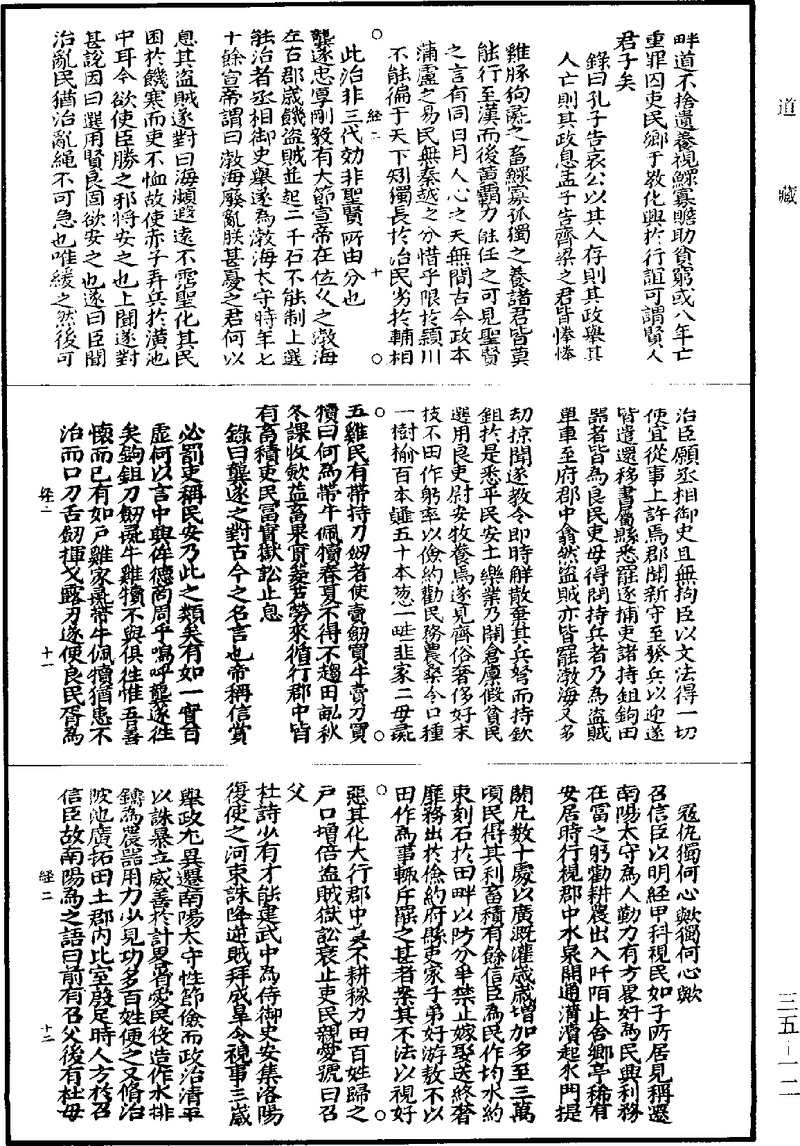 道藏
三五—一二
畔道不捨遺養視鰥寡贍助貧窮或八年亡
重罪囚吏民鄉于教化興於行誼可謂賢人
君子矣
錄曰孔子告哀公以其人存則其政舉其
人亡則其政息孟子告齊梁之君皆惓惓
雞豚狗彘之畜鰥寡孤獨之養諸君皆莫
能行至漢而後黃霸力能任之可見聖賢
之言有同日月人心之天無間古今政本
蒲盧之易民無秦越之分惜乎限於潁川
不能徧于天下矧獨長於治民劣於輔相
經二 十
此治非三代効非聖賢所由分也
龔遂忠厚剛毅有大節宣帝在位久之渤海
左右郡歲饑盜賊並起二千石不能制上選
能治者丞相御史舉遂為渤海太守時年七
十餘宣帝謂曰渤海廢亂朕甚憂之君何以
息其盜賊遂對曰海瀕遐遠不霑聖化其民
困於饑寒而吏不恤故使赤子弄兵於潢池
中耳今欲使臣勝之邪將安之也上聞遂對
甚說因曰選用賢良固欲安之也遂曰臣聞
治亂民猶治亂繩不可急也唯緩之然後可
治臣願丞相御史且無拘臣以文法得一切
便宜從事上許焉郡聞新守至發兵以迎遂
皆遣還移書屬縣悉罷逐捕吏諸持鉏鉤田
器者皆為良民吏毋得問持兵者乃為盜賊
單車至府郡中翕然盜賊亦皆罷渤海又多
劫掠聞遂教令即時解散棄其兵弩而持鉤
鉏於是悉平民安土樂業乃開倉廩假貧民
選用良吏尉安牧養焉遂見齊俗奢侈好末
技不田作躬率以儉約勸民務農桑令口種
一樹榆百本䪥五十本葱一畦韭家二母彘
五雞民有帶持刀劒者使賣劒買牛賣刀買
犢曰何為帶牛佩犢春夏不得不趨田畝秋
冬課收斂益畜果實菱芡勞來循行郡中皆
有畜積吏民富實獄訟止息
錄曰龔遂之對古今之名言也帝稱信賞
必罰吏稱民安乃此之類矣有如一實百
虛何以言中興侔德商周乎嗚呼龔遂往
矣鉤鉏刀劒彘牛雞犢不與俱往惟吾善
懷而已有如戶雞家彘帶牛佩犢猶患不
治而口刀舌劒揮戈露刃遂使良民胥為
經二 十一
寇仇獨何心歟獨何心歟
召信臣以明經甲科視民如子所居見稱遷
南陽太守為人勤力有方畧好為民興利務
在富之躬勸耕農出入阡陌止舍鄉亭稀有
安居時行視郡中水泉開通溝瀆起水門提
閼凡數十處以廣溉灌歲歲增加多至三萬
頃民得其利畜積有餘信臣為民作均水約
束刻石於田畔以防分爭禁止嫁娶送終奢
靡務出於儉約府縣吏家子弟好游敖不以
田作為事輒斥罷之甚者案其不法以視好
惡其化大行郡中莫不耕稼力田百姓歸之
戶口增倍盜賊獄訟衰止吏民親愛號曰召
父
杜詩少有才能建武中為侍御史安集洛陽
復使之河東誅降逆賊拜成臯令視事三歲
舉政尤異遷南陽太守性節儉而政治清平
以誅暴立威善於計畧省愛民役造作水排
鑄為農器用力少見功多百姓便之又脩治
陂池廣拓田土郡內比室殷足時人方於召
信臣故南陽為之語曰前有召父後有杜母
經二 十二